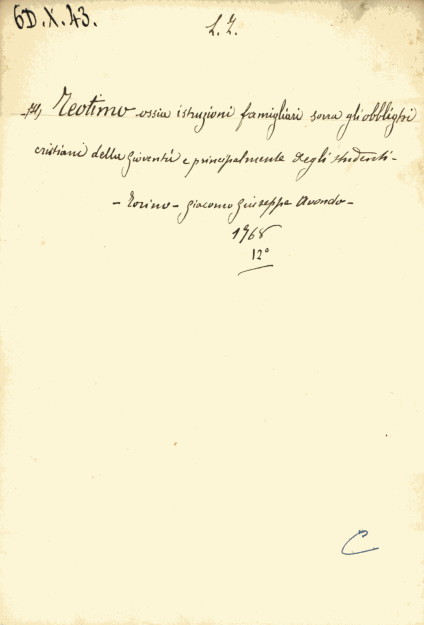 6D.X.43.
L. Z.
Neotimo ossia istruzioni famigliari sovra gli obblighi
cristiani della Gioventù e principalmente degli studenti -
- Torino - Giacomo Giuseppe Avondo -
1768
12°
C